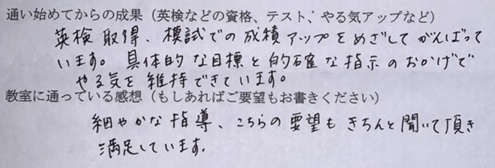 通い始めてからの成果（英検などの資格、テスト、やる気アップなど）
英検取得、模試での成績アップをめざしてがんばって
います。具体的な目標と的確な指示のおかげで
やる気を維持できています。
教室に通っている感想（もしあればご要望もお書きください）
細やかな指導、こちらの要望もきちんと聞いて頂き
満足しています。